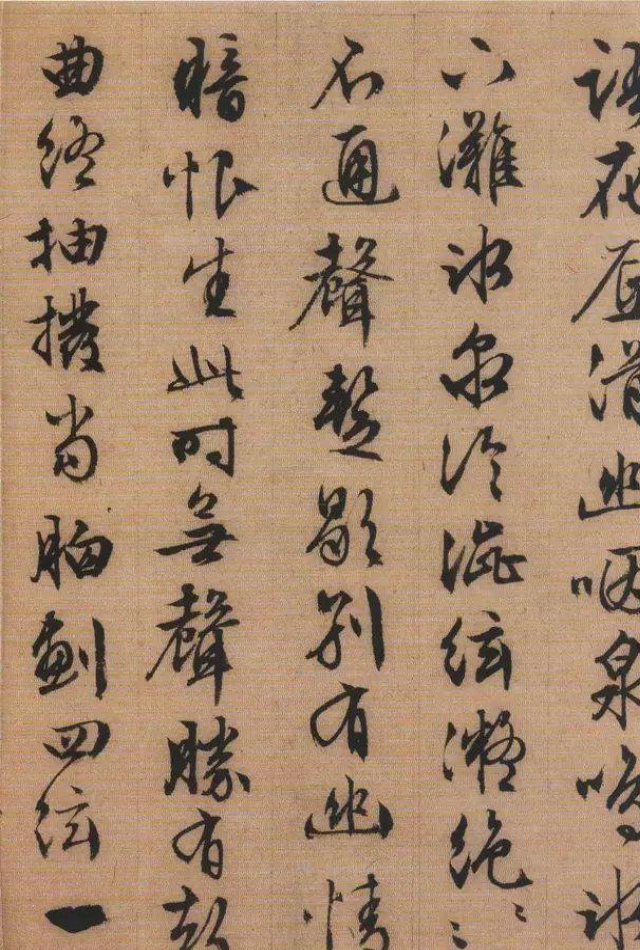 語花底滑幽咽泉鳴氷
下灘氷泉冷澀絃凝絶〻〻
不通聲暫歇別有幽情
暗恨生此時無聲勝有
曲終抽撥當胸劃四絃一